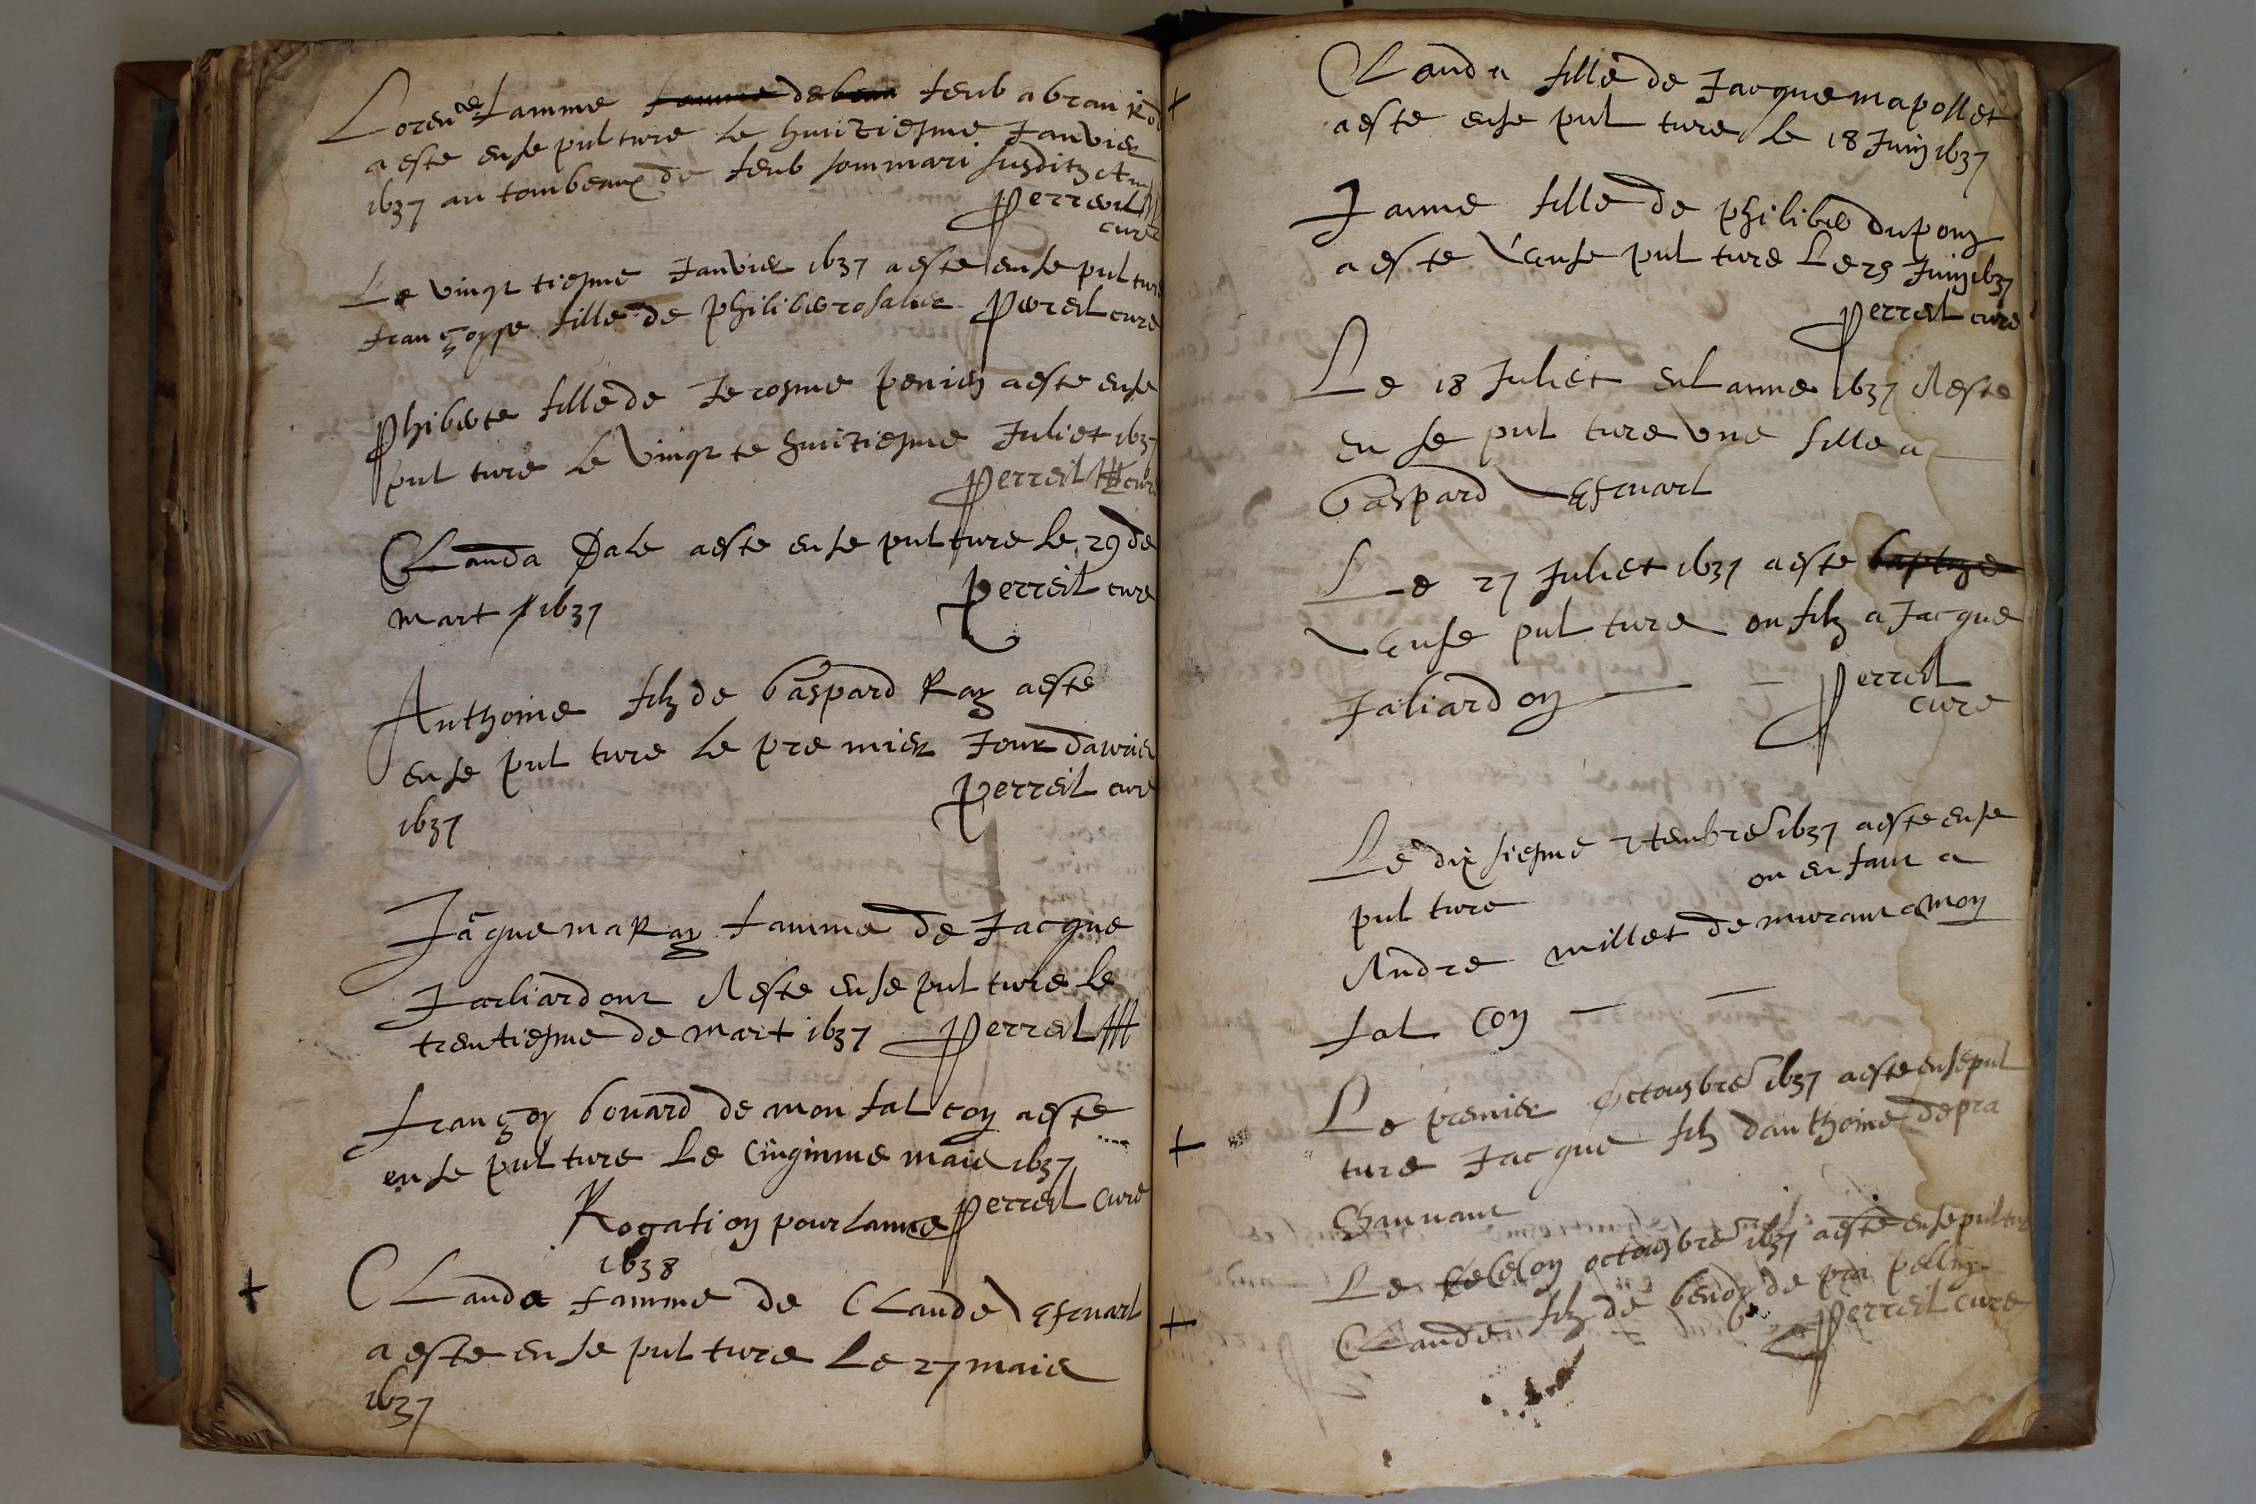 Lorence famme de feub abran Rd
a este ense pulture le huictiesme Janvier
1637 au tombeaux de feub sommari susditz
Perreil
cure
Le vingt tiesme Janvier 1637 a este ense pulture
françoyse fille de philiber rosaler Perreil cure
Phiberte fille de Jerosme penin a este ense
pul ture le vingt te huictiesme Juliet 1637
Perreil cure
Clauda Dale a este ense pulture le 29 de
mart 1637 Perreil cure
Anthoine filz de Gaspard Ray a este
ense pul ture le pre mier Jour davrier
1637 Perreil cure
Jaquema Ray famme de Jacque
Jailiardont A este ense pul ture le
trentiesme de mart 1637 Perreil
françoy bouard de mon fal coy a este
ense pulture Le Cinginme maie 1637
Perreil cure
Rogation pour lanne
1638
Clauda famme de Claude Esfruarl
a este en se pul ture Le 27 maie
1637
Clauda fille de Jacquema pollet
a este ense pul ture le 18 Juin 1637
Janne fille de philiber dupony
a este Ense pul ture Le 25 Juin 1637
Perreil cure
Le 18 Juliet en Lanne 1637 A este
en se pul ture une fille a
Gaspard Esfruarl
Le 27 Juliet 1637 a este baptize
Ense pul ture on filz a Jacque
Jaliardon Perreil
cure
Le dix siesme 7tembre 1637 a este ense
pul ture on enfant a
Andre millet de murant a mon
fal Con
Le premier octousbre 1637 a este ensepul
ture Jacque filz danthoine depra
Chauvant
Le Seccon octousbre 1637 a este ensepulture
Claude filz de benoy de pra pellin
Perreil cure